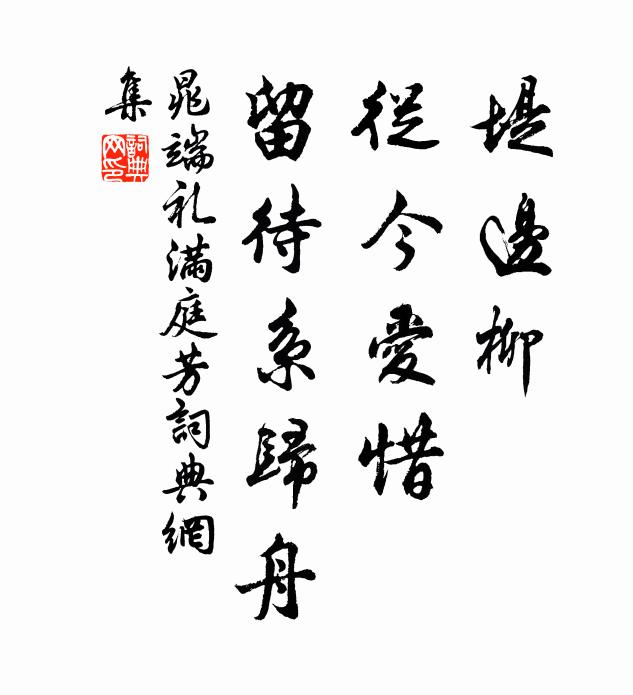 堤邊柳
從今愛惜
留待系歸舟
晁端礼滿庭芳詞典網
集
詞典
网印